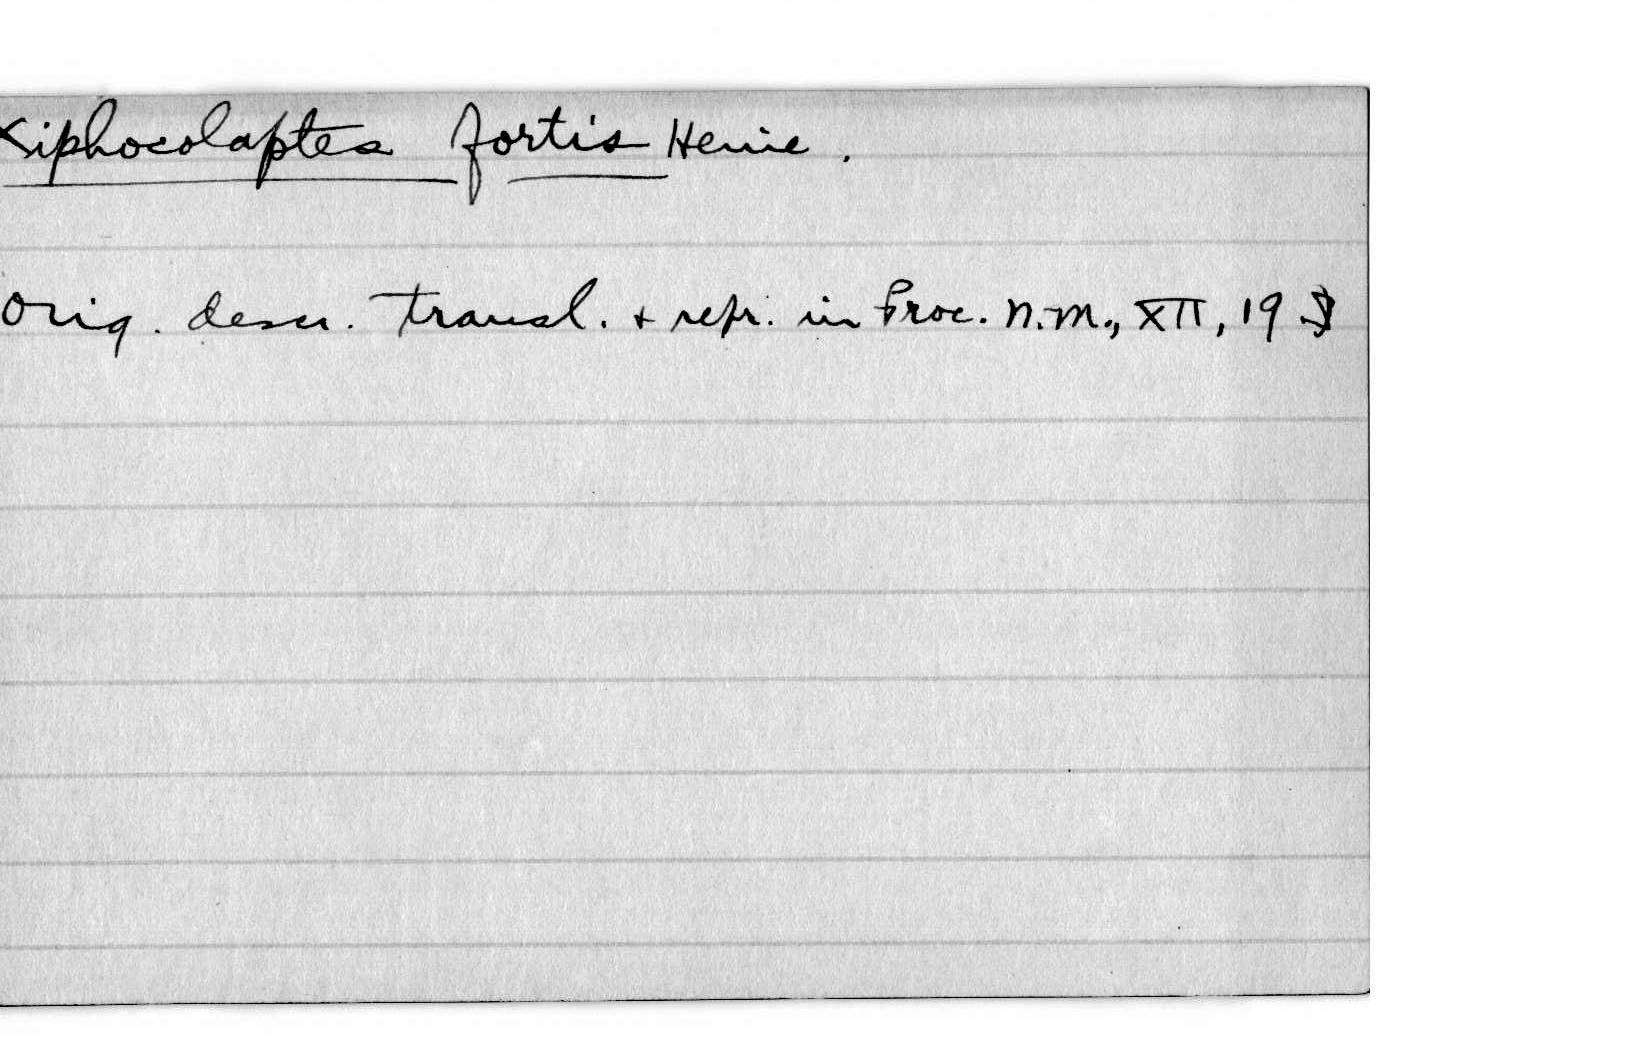 Xiphocolaptes fortis Heine.
Orig. descr. transl. & repr. in Proc. N.M., XII, 19